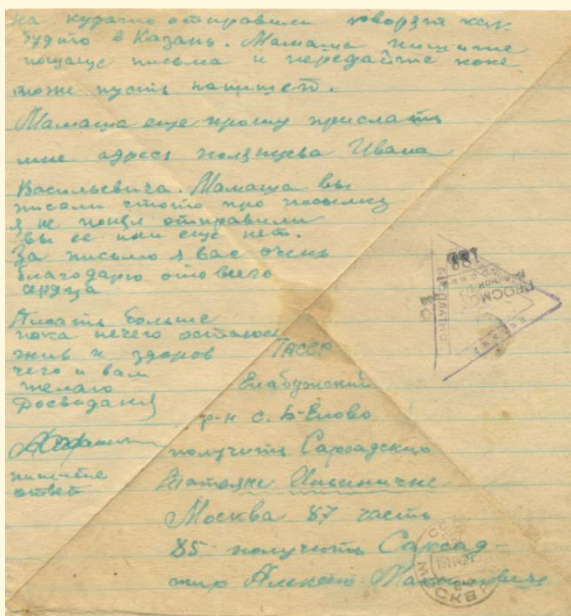 на курачно отправили говорят как
будто в Казань. Мамаша пишите
почаще письма и передайте коке
тоже пусть напишет.
Мамаша еще прошу прислать
мне адрес Ивана
Васильевича. Мамаша вы
писали чтото про посылку
я не понял отправили
вы ее или еще нет.
За письмо я вас очень
благодарю ото всего
сердца
Писать больше
пока нечего остаюсь
жив и здоров
чего и вам
желаю
Досвидания
пишите
ответ
ТАССР
Елабужский
р-н с. Б-Елово
получить
Татьяне Ильиничне
Москва 87 часть
85 получить
БЕСПЛАТНО